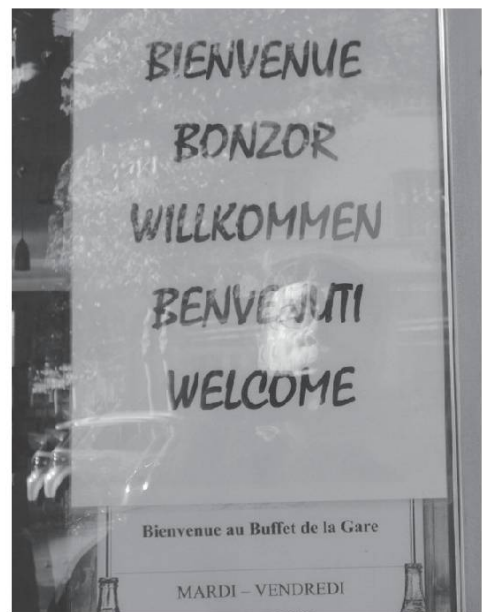 BIENVENUE
BONZOR
WILLKOMMEN
BENVENUTI
WELCOME
Bienvenue au Buffet de la Gare
MARDI – VENDREDI